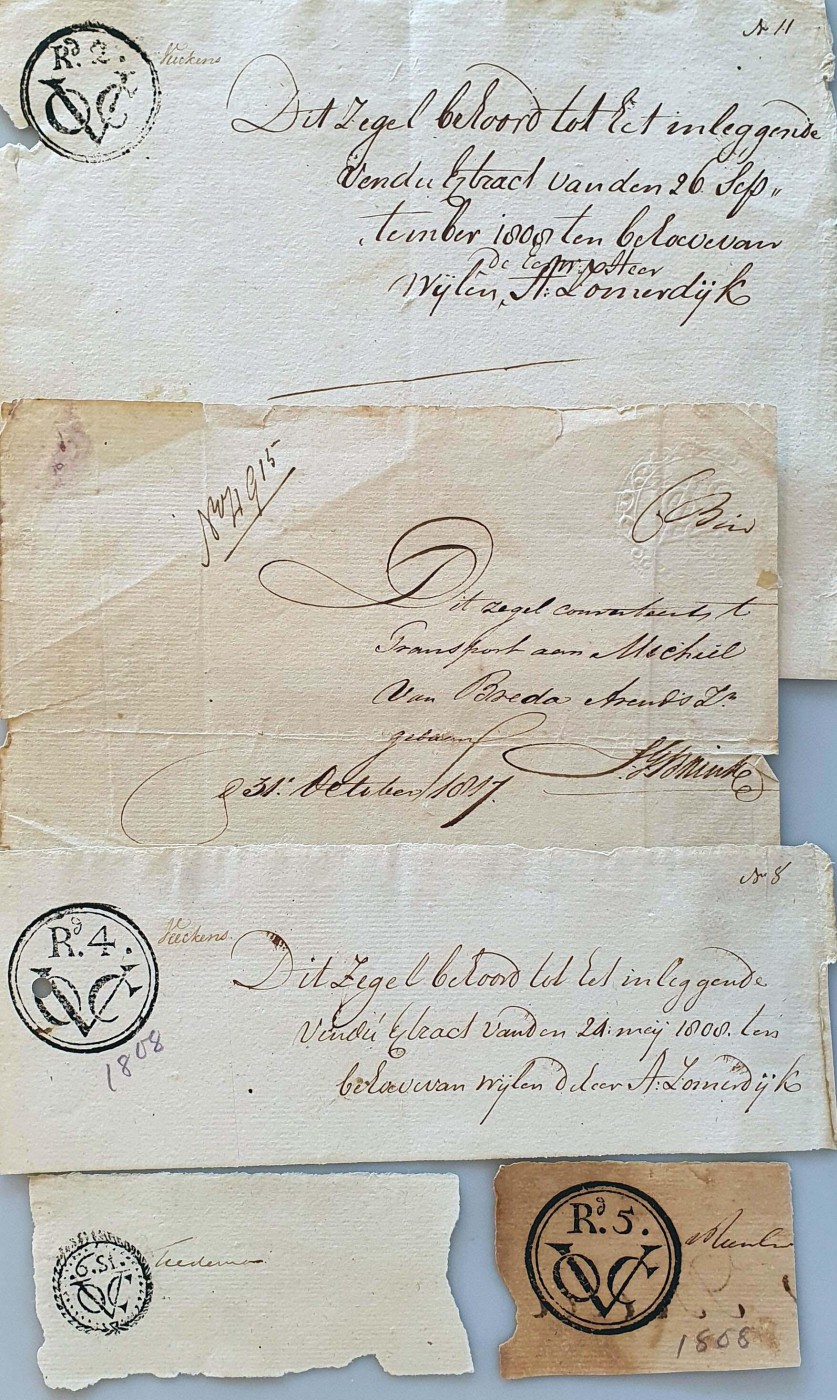 No 11
Rd. 2.
VOC
Veeckens
Dit Zegel behoord tot het inleggende
Vendu Extract van den 26 Sep„
„tember 1808 ten behoeve van
de Heer
Wijlen, A: Zomerdijk
No 4915
Dit zegel
Transport aan Michiel
Van Breda Arends Zn
gedaan
31t October 1817.
No 8
Rd. 4.
VOC
1808
Veeckens.
Dit Zegel behoord tot het inleggende
Vendu Extract van den 24 meij 1808. ten
behoeve van wijlen de heer A: Zomerdijk
6. St.
VOC
Rd. 5.
VOC
1808